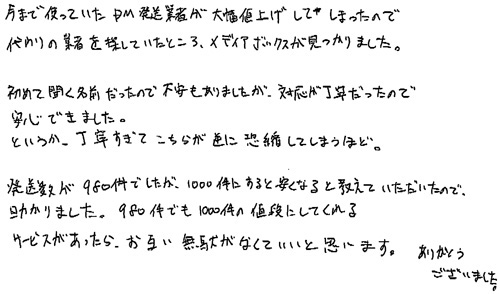 今まで使っていたDM発送業者が大幅値上げしてしまったので
代わりの業者を探していたところ、メディアボックスが見つかりました。
初めて聞く名前だったので不安もありましたが、対応が丁寧だったので
安心できました。
というか、丁寧すぎてこちらが逆に恐縮してしまうほど。
発送数が980件でしたが、1000件にすると安くなると教えていただいたので、
助かりました。980件でも1000件の値段にしてくれる
サービスがあったら、お互い無駄がなくていいと思います。
ありがとう
ございました。